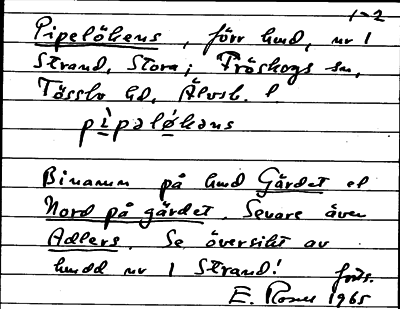 1-2
Pipelökens, förr hmd, nr 1
Strand, Stora; Fröskogs sn,
Tössbo hd, Älvsb. l
pìpəlǿkəns
Binamn på hmd Gärdet el
Nord på gärdet. Senare även
Adlers. Se översikt av
hmdd nr 1 Strand!
forts.
E. 1965